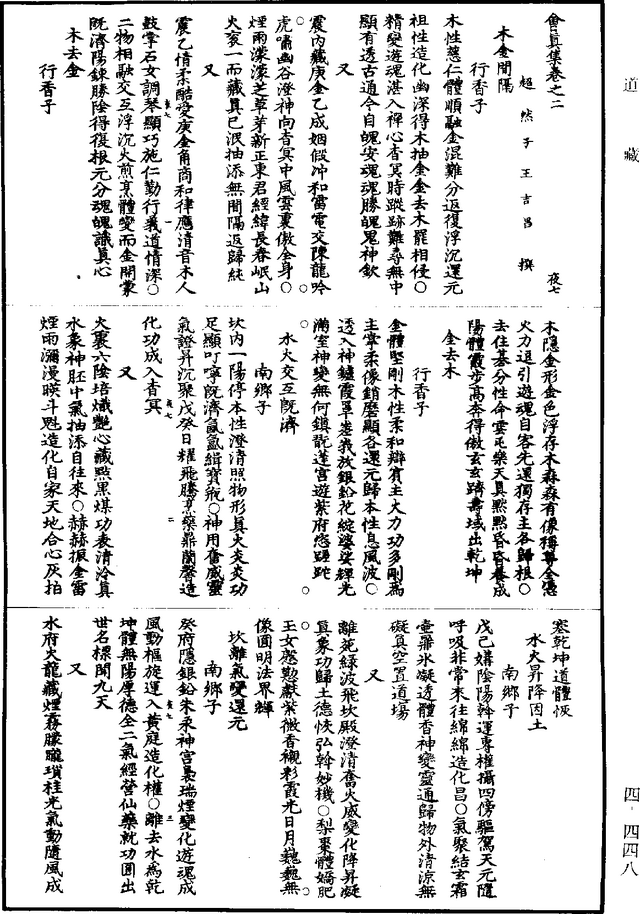 道藏
會真集卷之二
超然子王吉昌撰
夜七
木金間隔
行香子
木性慈仁體順融金混難分返復浮沉還元
祖性造化幽深得木抽金金去木罷相侵○
精變遊魂湛入禪心杳冥時蹤跡難尋無中
顯有透古通今自魄安魂魂勝魄鬼神欽
又
震內藏庚金乙成姻假冲和雷電交陳龍吟
虎嘯幽谷澄神向杳冥中風雲裏傲全身○
煙雨濛濛芝草芽新正東君經緯長春岷山
火衮一而藏真已泯抽添無間隔返歸純
又
震乙情柔酷愛庚金角商和律應清音木人
鼓掌石女調琴顯巧施仁勤行義道情深○
二物相融交互浮沉火煎烹體變而金開蒙
既濟陽鍊勝陰得復根元分魂魄識真心
木去金
行香子
木隱金形金色浮存木森森有像稱尊全憑
火力追引遊魂自客先還獨存主各歸根○
去住基分性命雲屯樂天真默默昏昏養成
陽體散步高奔得傲玄玄躋壽域出乾坤
金去木
行香子
金體堅剛木性柔和辯賓主火力功多剛為
主掌柔像銷磨顯各還元歸本性息風波○
透入神鑪霞罩嵳峩放銀鉛花綻婆娑輝光
滿室神變無何鎮翫蓬宮遊紫府恣蹉跎
水火交互既濟
南鄉子
坎內一陽停本性澄清照物形真火炎炎功
足顯叮嚀既濟氤氳緝寶瓶○神用奮威靈
氣證昇沉聚戊癸日耀飛騰烹藥鼎蘭馨造
化功成入杳冥
又
火裏六陰培熾艷心藏點黑煤功表清冷真
水象神胚中氣抽添自往來○赫赫振金雷
煙雨瀰漫暎斗魁造化自家天地合心灰拍
塞乾坤道體恢
水火昇降因土
南鄉子
戊己媾陰陽斡運專權攝四傍驅駕天元隨
呼吸非常來往綿綿造化昌○氣聚結玄霜
壺鼎氷凝透體香神變靈通歸物外清涼無
礙真空置道場
又
離菀綠波飛坎殿澄清奮火威變化降昇凝
真象功歸土德恢弘斡妙機○梨棗體嬌肥
玉女慇懃獻紫微香襯彩霞光日月巍巍無
像圓明法界輝
坎離氣變還元
南鄉子
癸府隱銀鉛朱汞神宮裊瑞煙變化遊魂成
風動樞旋運入黃庭造化權○離去水為乾
坤體無陽厚德全二氣經營仙藥就功圓出
世名標聞九天
又
水府火龍藏煙霧朦朧瑣桂光氣動隨風成
四-四四八